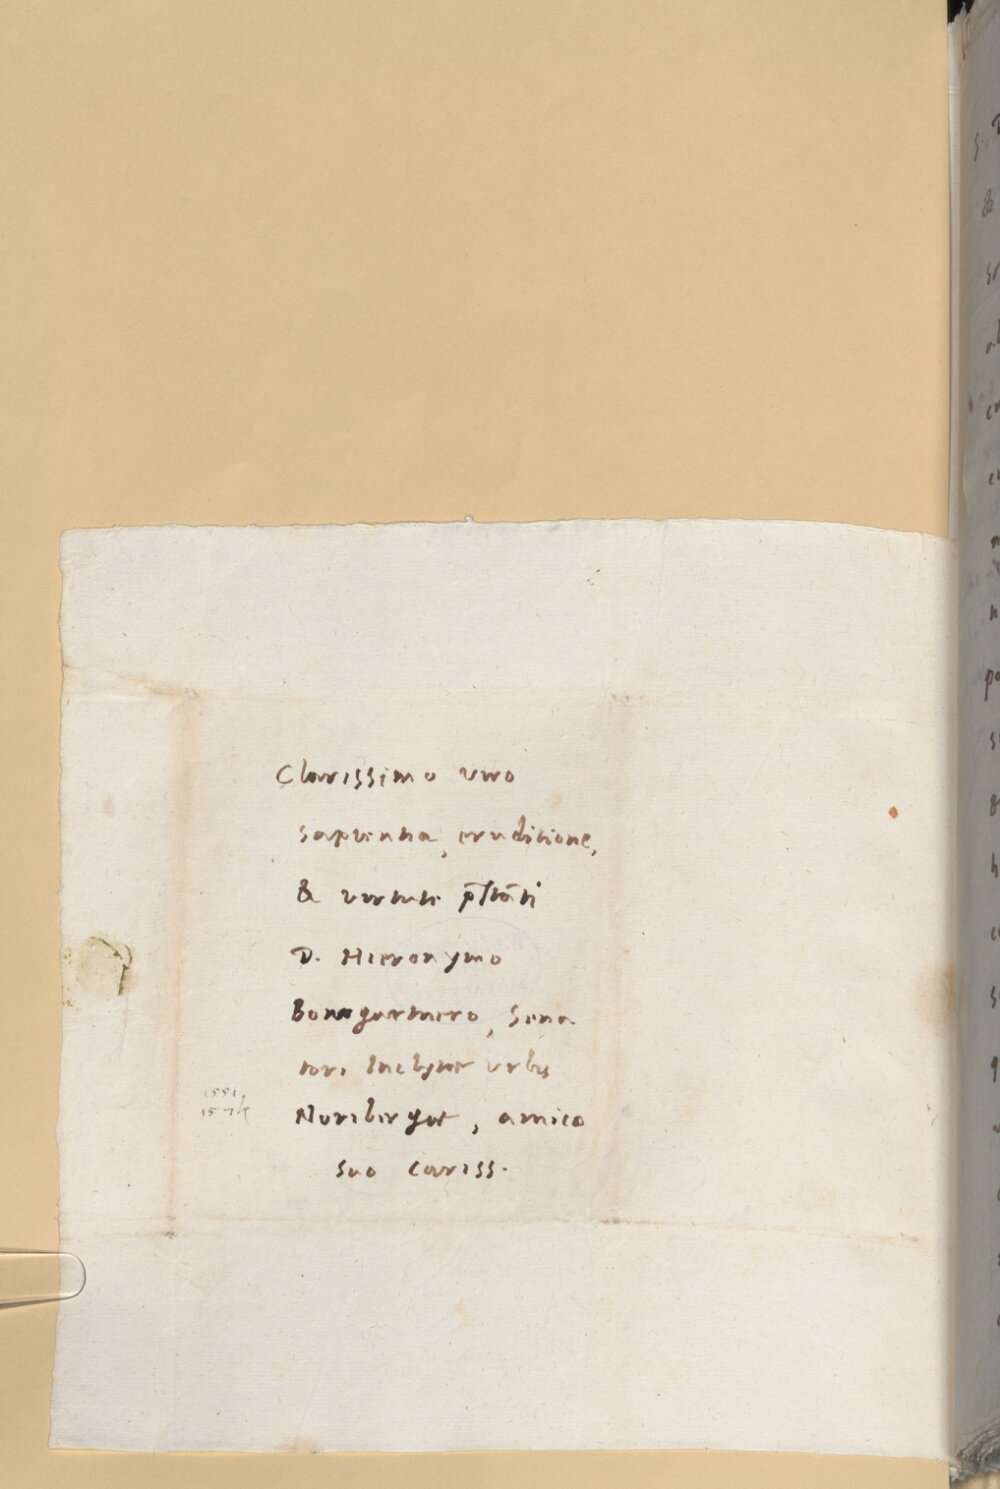 Clarissimo viro
sapientia, eruditione,
& virtute p̄stāti
D. Hieronymo
Bomgartnero, Sena
tori Inclytae urbis
Noribergae, amico
suo cariss.